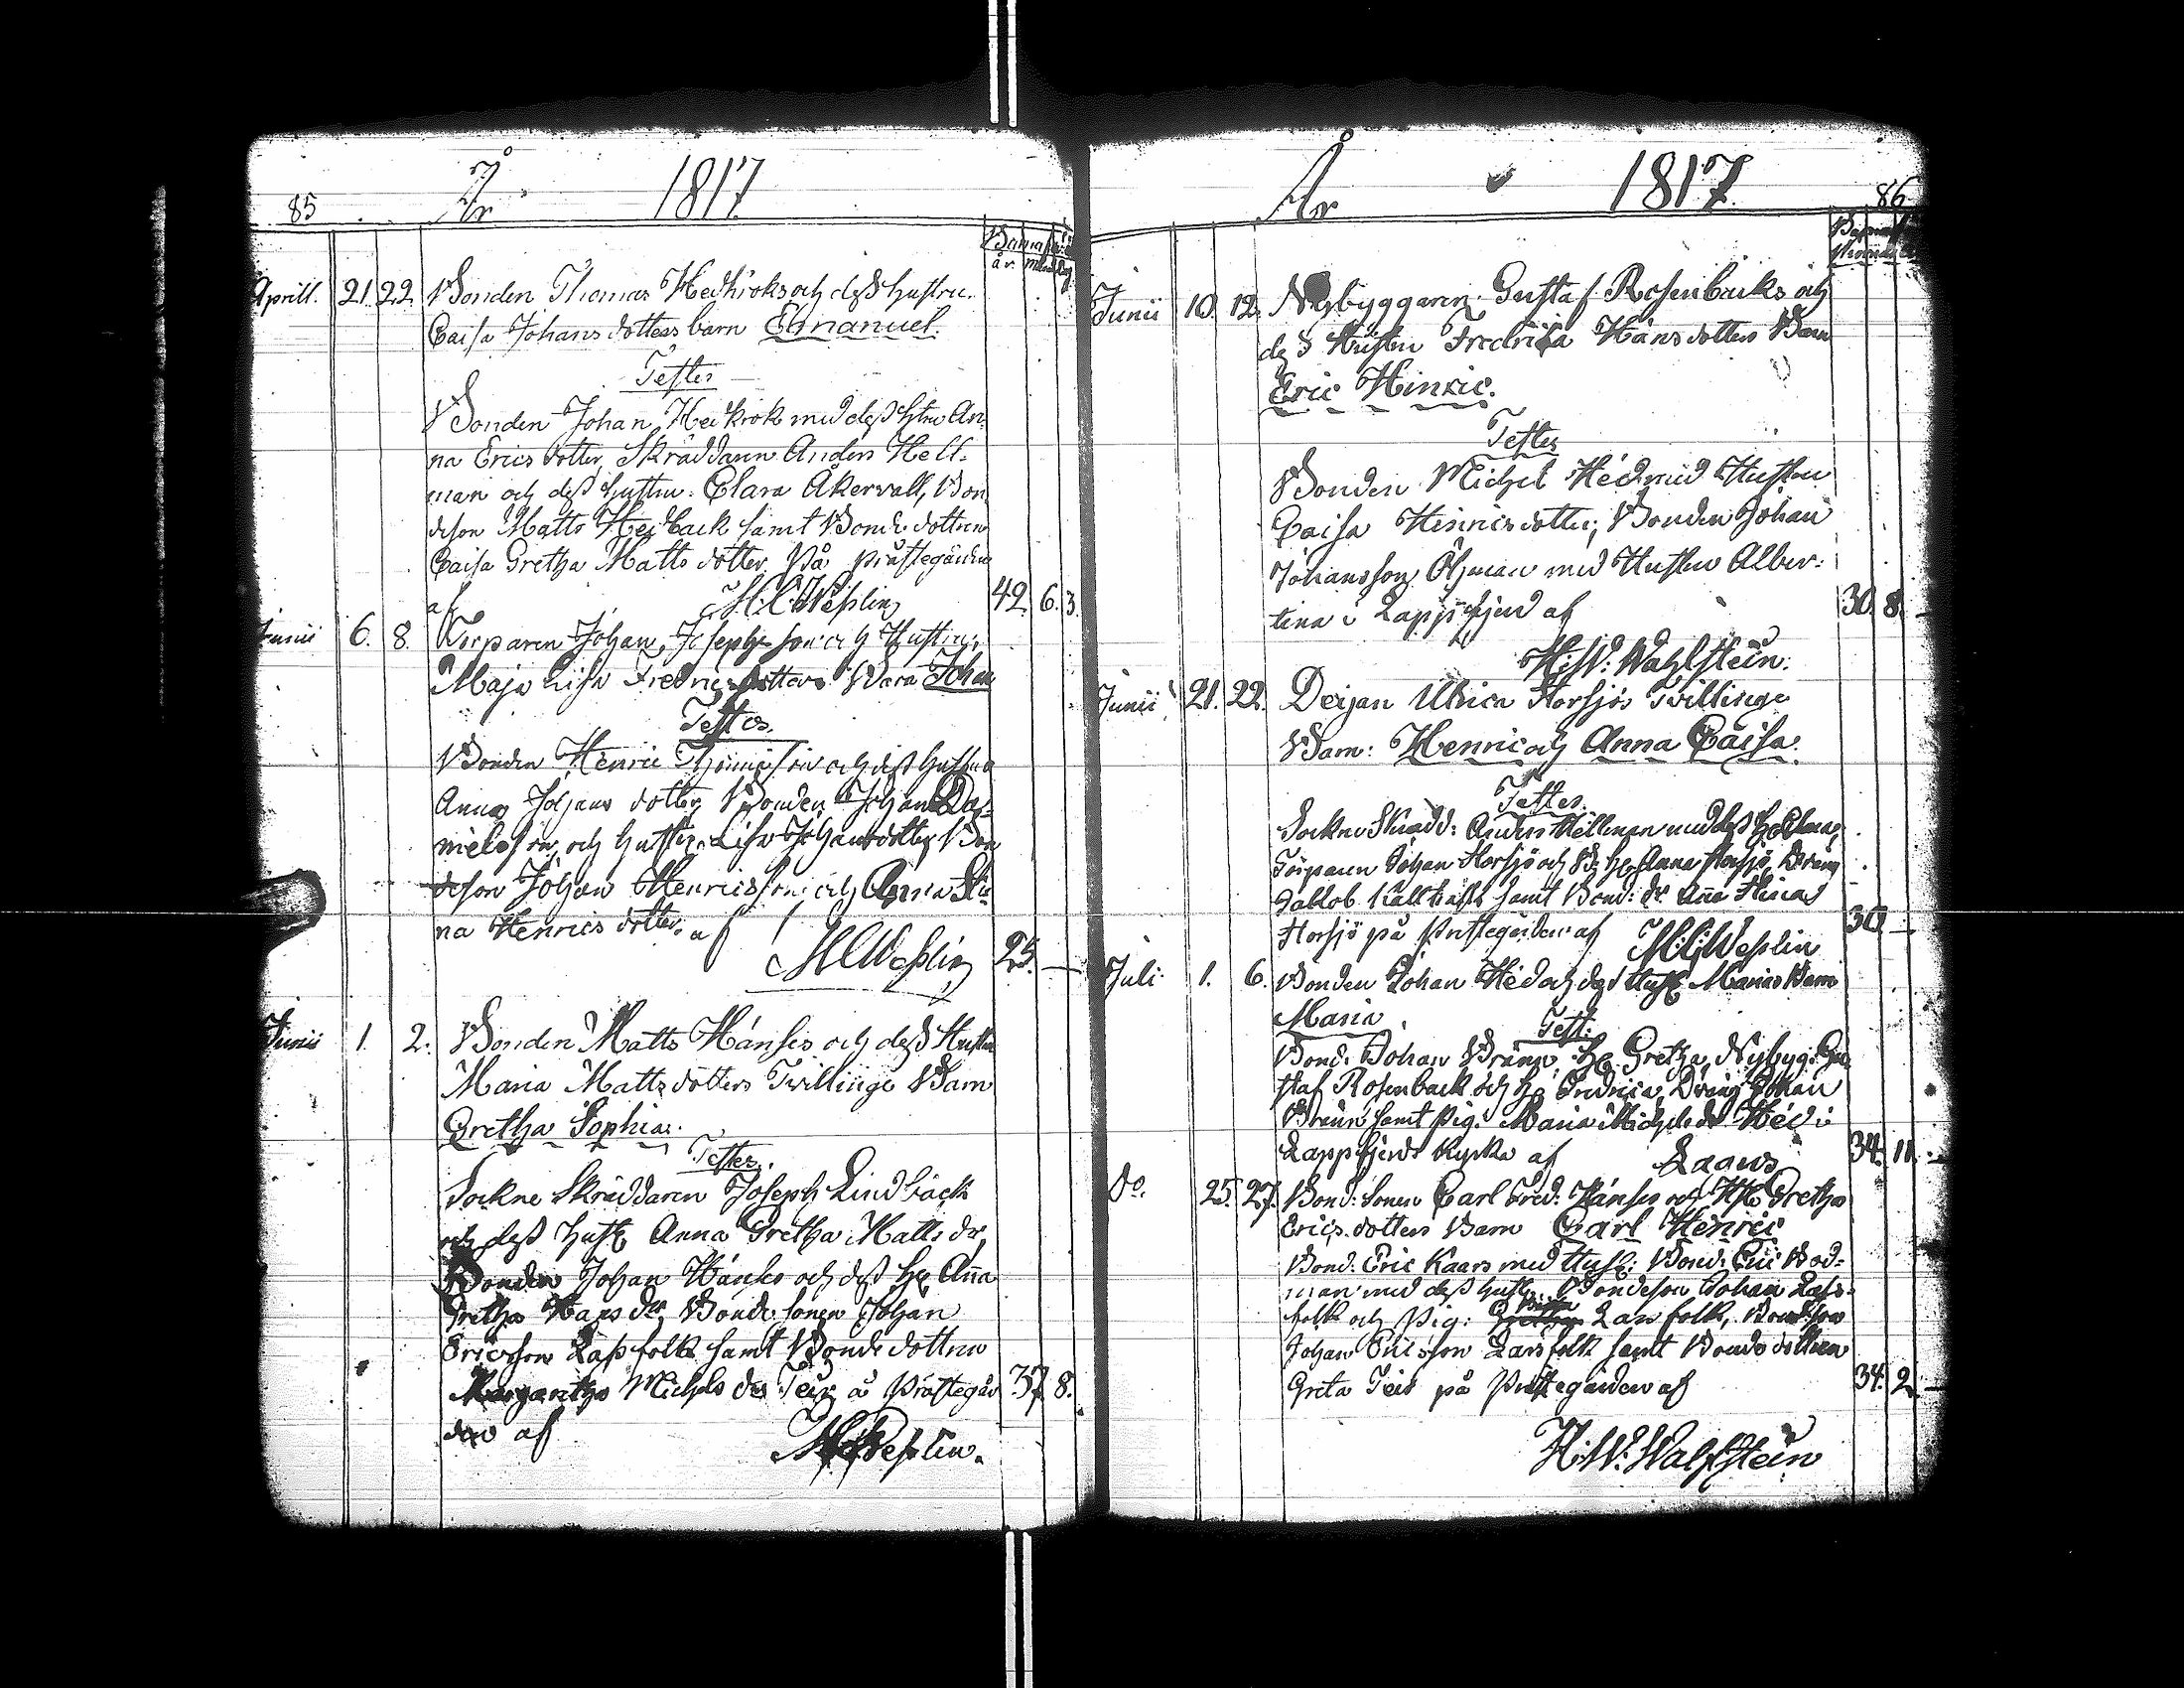 85 År 1817
Barna föd:
år. mån. dag
Aprill. 21. 22. Bonden Thomas Hedkroks och dess hustru.
Caisa Johans dotters barn Emanuel.
Testes
Bonden Johan Hedkrok med dess hstru An-
na Ericsdotter, Skräddaren Anders Hell-
man och dess hustru. Clara Åkervall, Bon
deson Matts Hedback samt Bonde dottren
Caisa Gretha Matts dotter. På prästegården
af H.C. Wesslin 42. 6. 3.
Junii 6. 8. Torparen Johan Josephsson och Hustru,
Maja Lisa Fredricsdotters Barn Johan
Testes.
Bonden Henric Thomisson och dess hustru
Anna Johans dotter, Bonden Johan Da-
nielsson, och hustru. Lisa Johansdotter, Bon
deson Johan Henricsson och Anna Sti-
na Henrics dotter. af
H C Wesslin 25. —
Junii 1. 2. Bonden Matts Hånses och dess Hustru
Maria Matts dotters Twillinge Barn
Gretha Sophia.
Testes.
Sockne Skräddaren Joseph Lindbäck
och dess hust. Anna Gretha Matts dr,
Bonden Johan Hånses och dess h. Anna
Gretha Hans dr, Bonde sonen Johan
Ericsson Lassfolk samt Bonde dottren
Margaretha Michels dr Teir å Prästegår 37. 8.
den af
H C Wesslin.
År 1817. 86.
Junii 10. 12. Nybyggaren Gustaf Rosenbacks och
dess Hustru Fredrika Hansdotters Barn
Eric Hinric.
Testes
Bonden Michel Héd med Hustru
Caisa Hinricsdotter, Bonden Johan
Johansson Öhman med Hustru Alber-
tina i Lappfjerd af 30. 8. —
H:W: Wahlstein.
Junii 21. 22. Dejan Ulrica Storsjös Twillinge
Barn: Henric och Anna Caisa.
Testes.
Sockne Skrädd: Anders Hellman med dess h. Clara,
Torparen Johan Storsjö och h. Anna Storsjö, Dräng
Jakob Källback samt Bond: dr Anna Stina
Storsjö på Prästegården af H:C: Wesslin 30. —
Juli 1. 6. Bonden Johan Héd och dess Hust. Marias Barn
Maria. Test:
Bond: Johan Bränn, h. Gretha, Nybyg: Gu
staf Rosenback och h. Fredrica, Dräng Johan
Bränn samt Pig: Maria Michels dr Héd i
Lappfjerds Kyrka af Laans 34. 11. —
Do. 25. 27. Bond: Sonen Carl Fred: Hånses och Hst. Gretha
Erics dotters Barn Carl Henric
Bond: Eric Kaars med Hust: Bond: Eric Bod-
man med dess hust. Bondeson Johan Lass-
folk och Pig: Lassfolk, Bondeson
Johan Ericsson Lassfolk samt Bondedottren
Greta Teir på Prästegården af 34. 2. —
H:W: Wahlstein